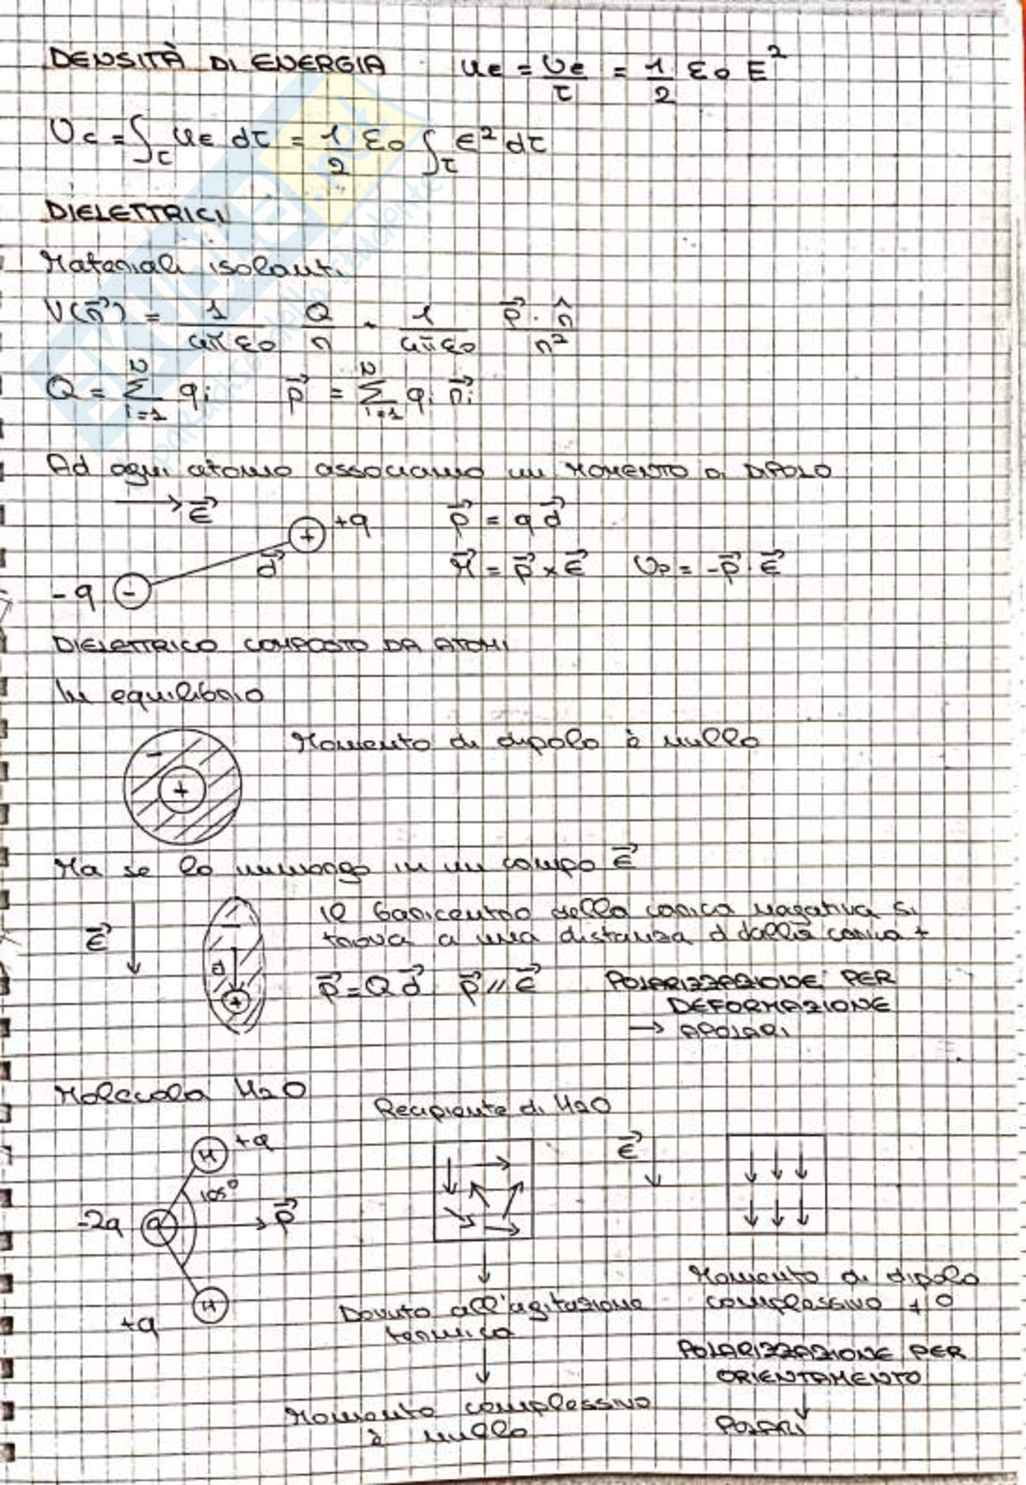 DENSITÀ DI ENERGIA  ue = Ue/τ = 1/2 ε0 E²
Ue = ∫τ ue dτ = 1/2 ε0 ∫τ E² dτ
DIELETTRICI
Materiali isolanti
V(r⃗) = 1/4πε0 Q/r + 1/4πε0 p⃗ · r̂/r²
Q = Σ i=1 N qi  p⃗ = Σ i=1 N qi r⃗i
Ad ogni atomo associamo un MOMENTO DI DIPOLO
E⃗
+q  p⃗ = q d⃗
+
d⃗  M⃗ = p⃗ × E⃗  Up = -p⃗ · E⃗
-q -
DIELETTRICO COMPOSTO DA ATOMI
In equilibrio
Momento di dipolo è nullo
-
+
Ma se lo immergo in un campo E⃗
Il baricentro della carica negativa si
trova a una distanza d dalla carica +
E⃗
-
d
+
p⃗ = Q d⃗  p⃗ // E⃗  POLARIZZAZIONE PER
DEFORMAZIONE
→ APOLARI
Molecola H2O  Recipiente di H2O
H +q
105°
-2q O p⃗
H
+q
E⃗
Dovuto all'agitazione
termica
Momento complessivo
è nullo
Momento di dipolo
complessivo ≠ 0
POLARIZZAZIONE PER
ORIENTAMENTO
POLARI